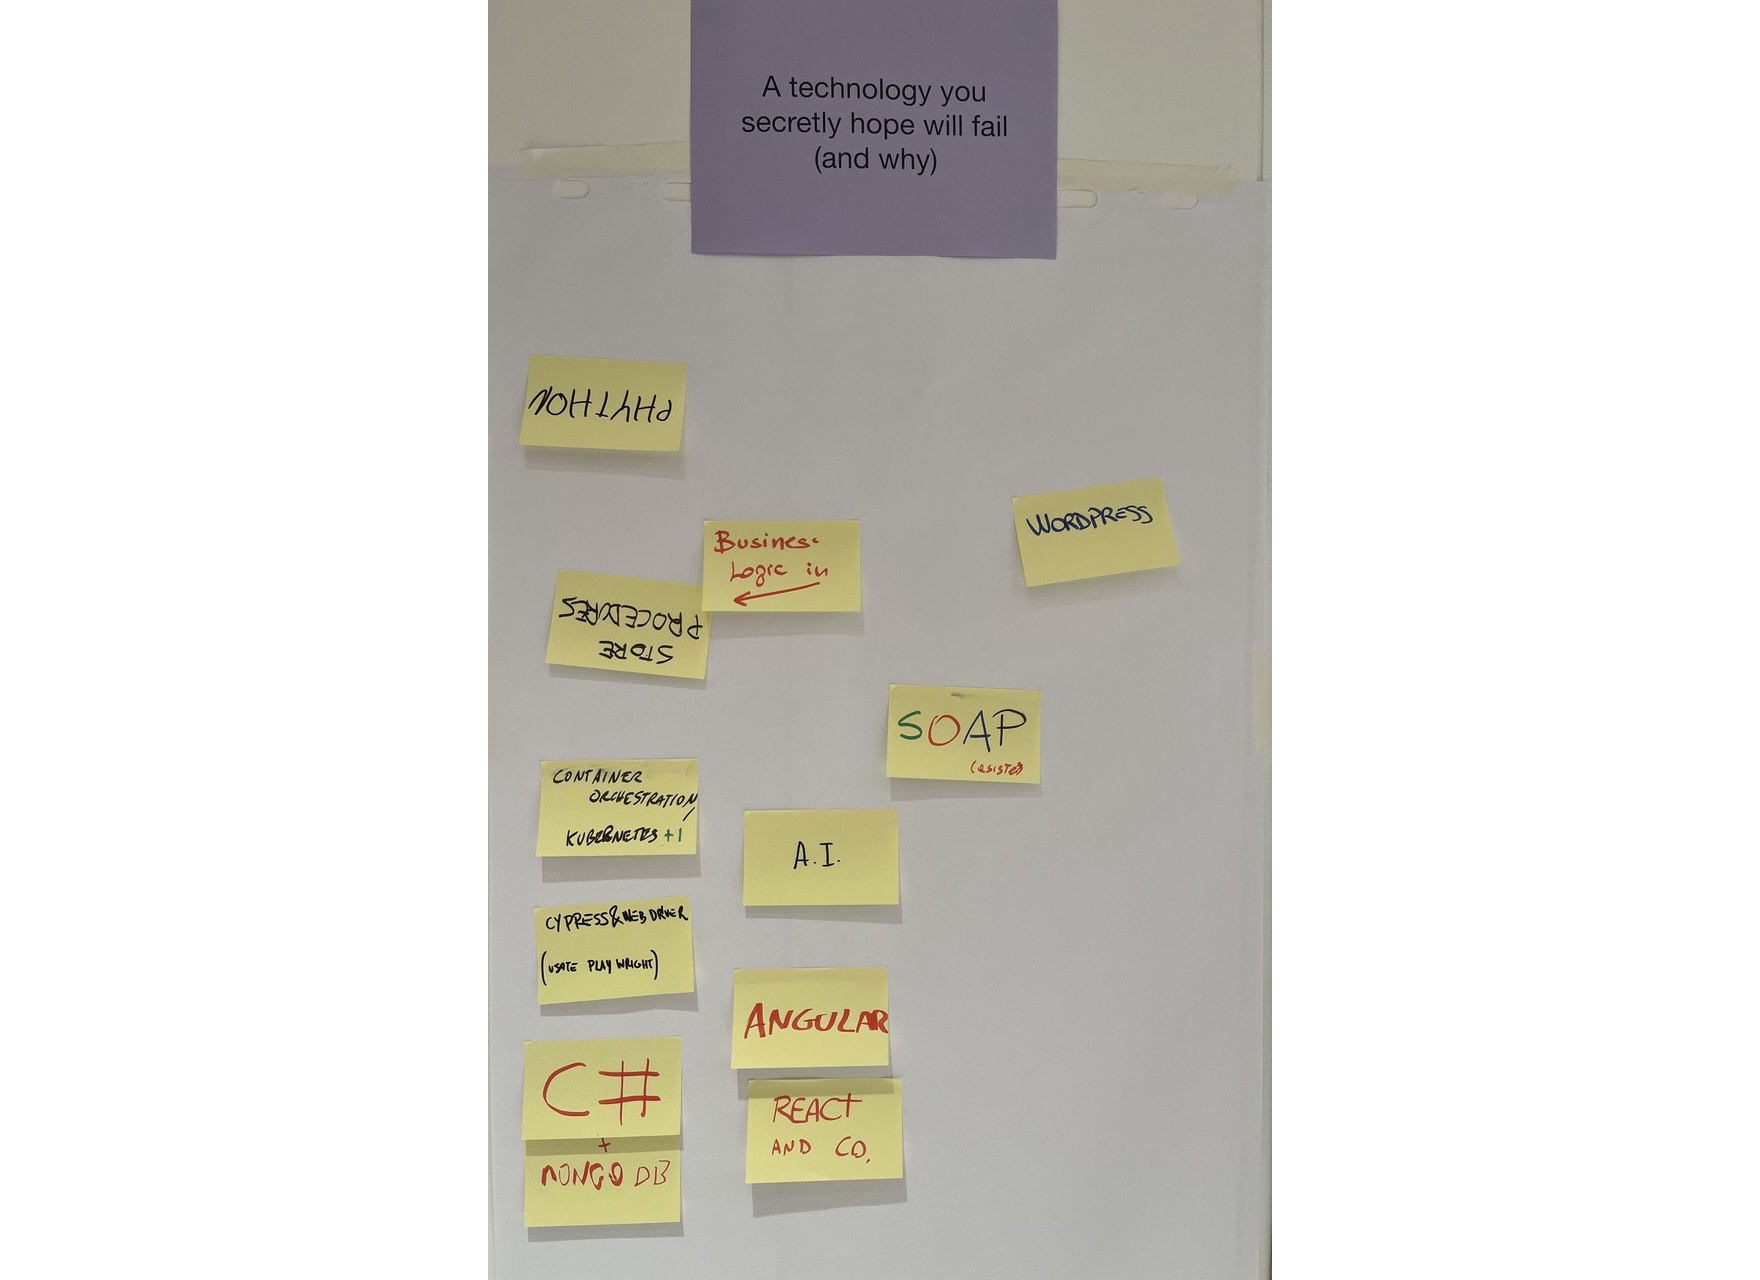 A technology you
secretly hope will fail
(and why)
PHYTHON
WORDPRESS
Busines.
Logic in
STORE
PROCEDURES
SOAP
(esiste)
CONTAINER
ORCHESTRATION/
KUBERNETES +1
A.I.
CYPRESS&WEBDRIVER
(USATE PLAYWRIGHT)
ANGULAR
C#
+
MONGO DB
REACT
AND CO.